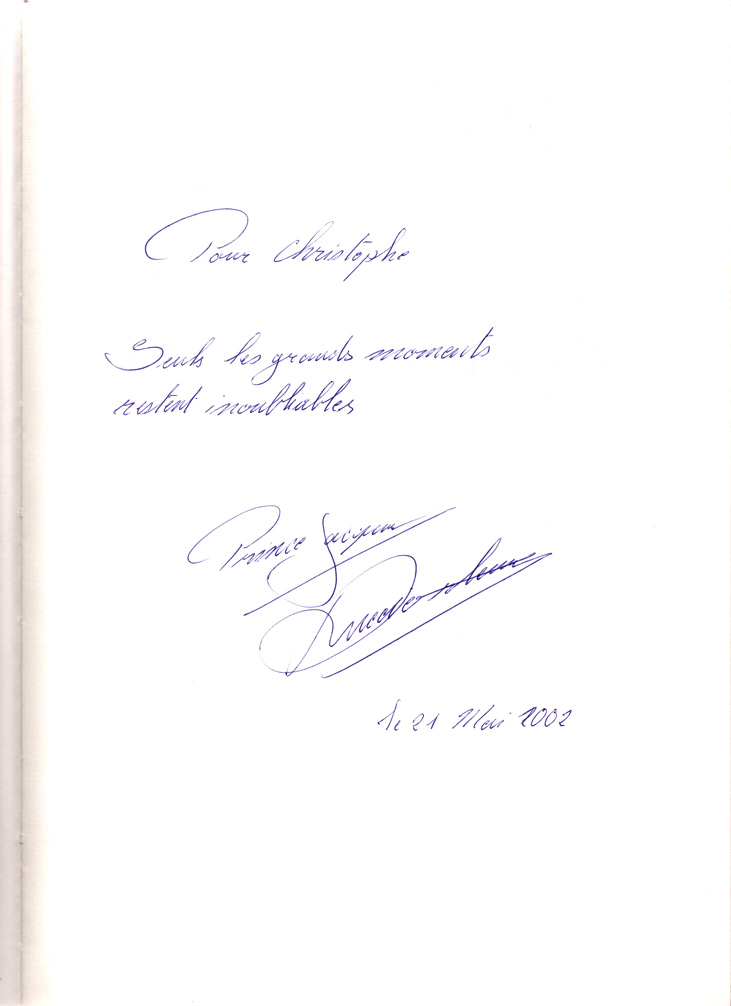 Pour Christophe
Seuls les grands moments
restent inoubliables
Prince Jacques
le 21 Mai 2002